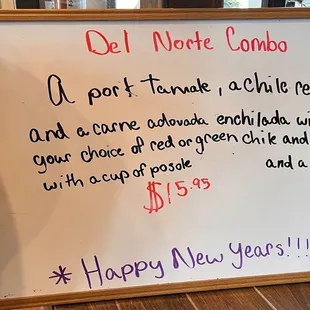 Del Norte Combo
A port Tamale, a chile re
and a carne adovada enchilada wi
your choice of red or green chile and
with a cup of posole and a
$15.95
* Happy New Years!!!